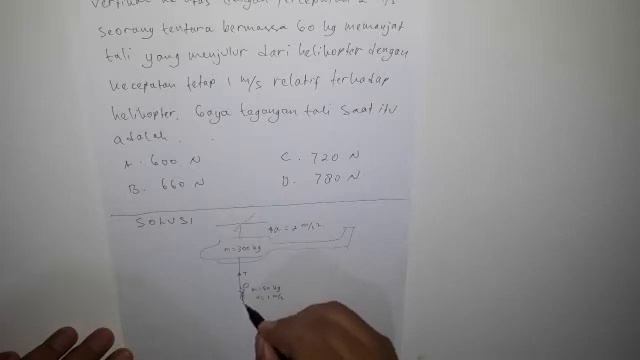 vertikal ke atas dengan percepatan 2 m/s
seorang tentara bermassa 60 kg memanjat
tali yang menjulur dari helikopter dengan
kecepatan tetap 1 m/s relatif terhadap
helikopter. Gaya tegangan tali saat itu
adalah . .
A. 600 N
C. 720 N
B. 660 N
D. 780 N
SOLUSI
a = 2 m/s²
m = 300 kg
T
m = 60 kg
v = 1 m/s